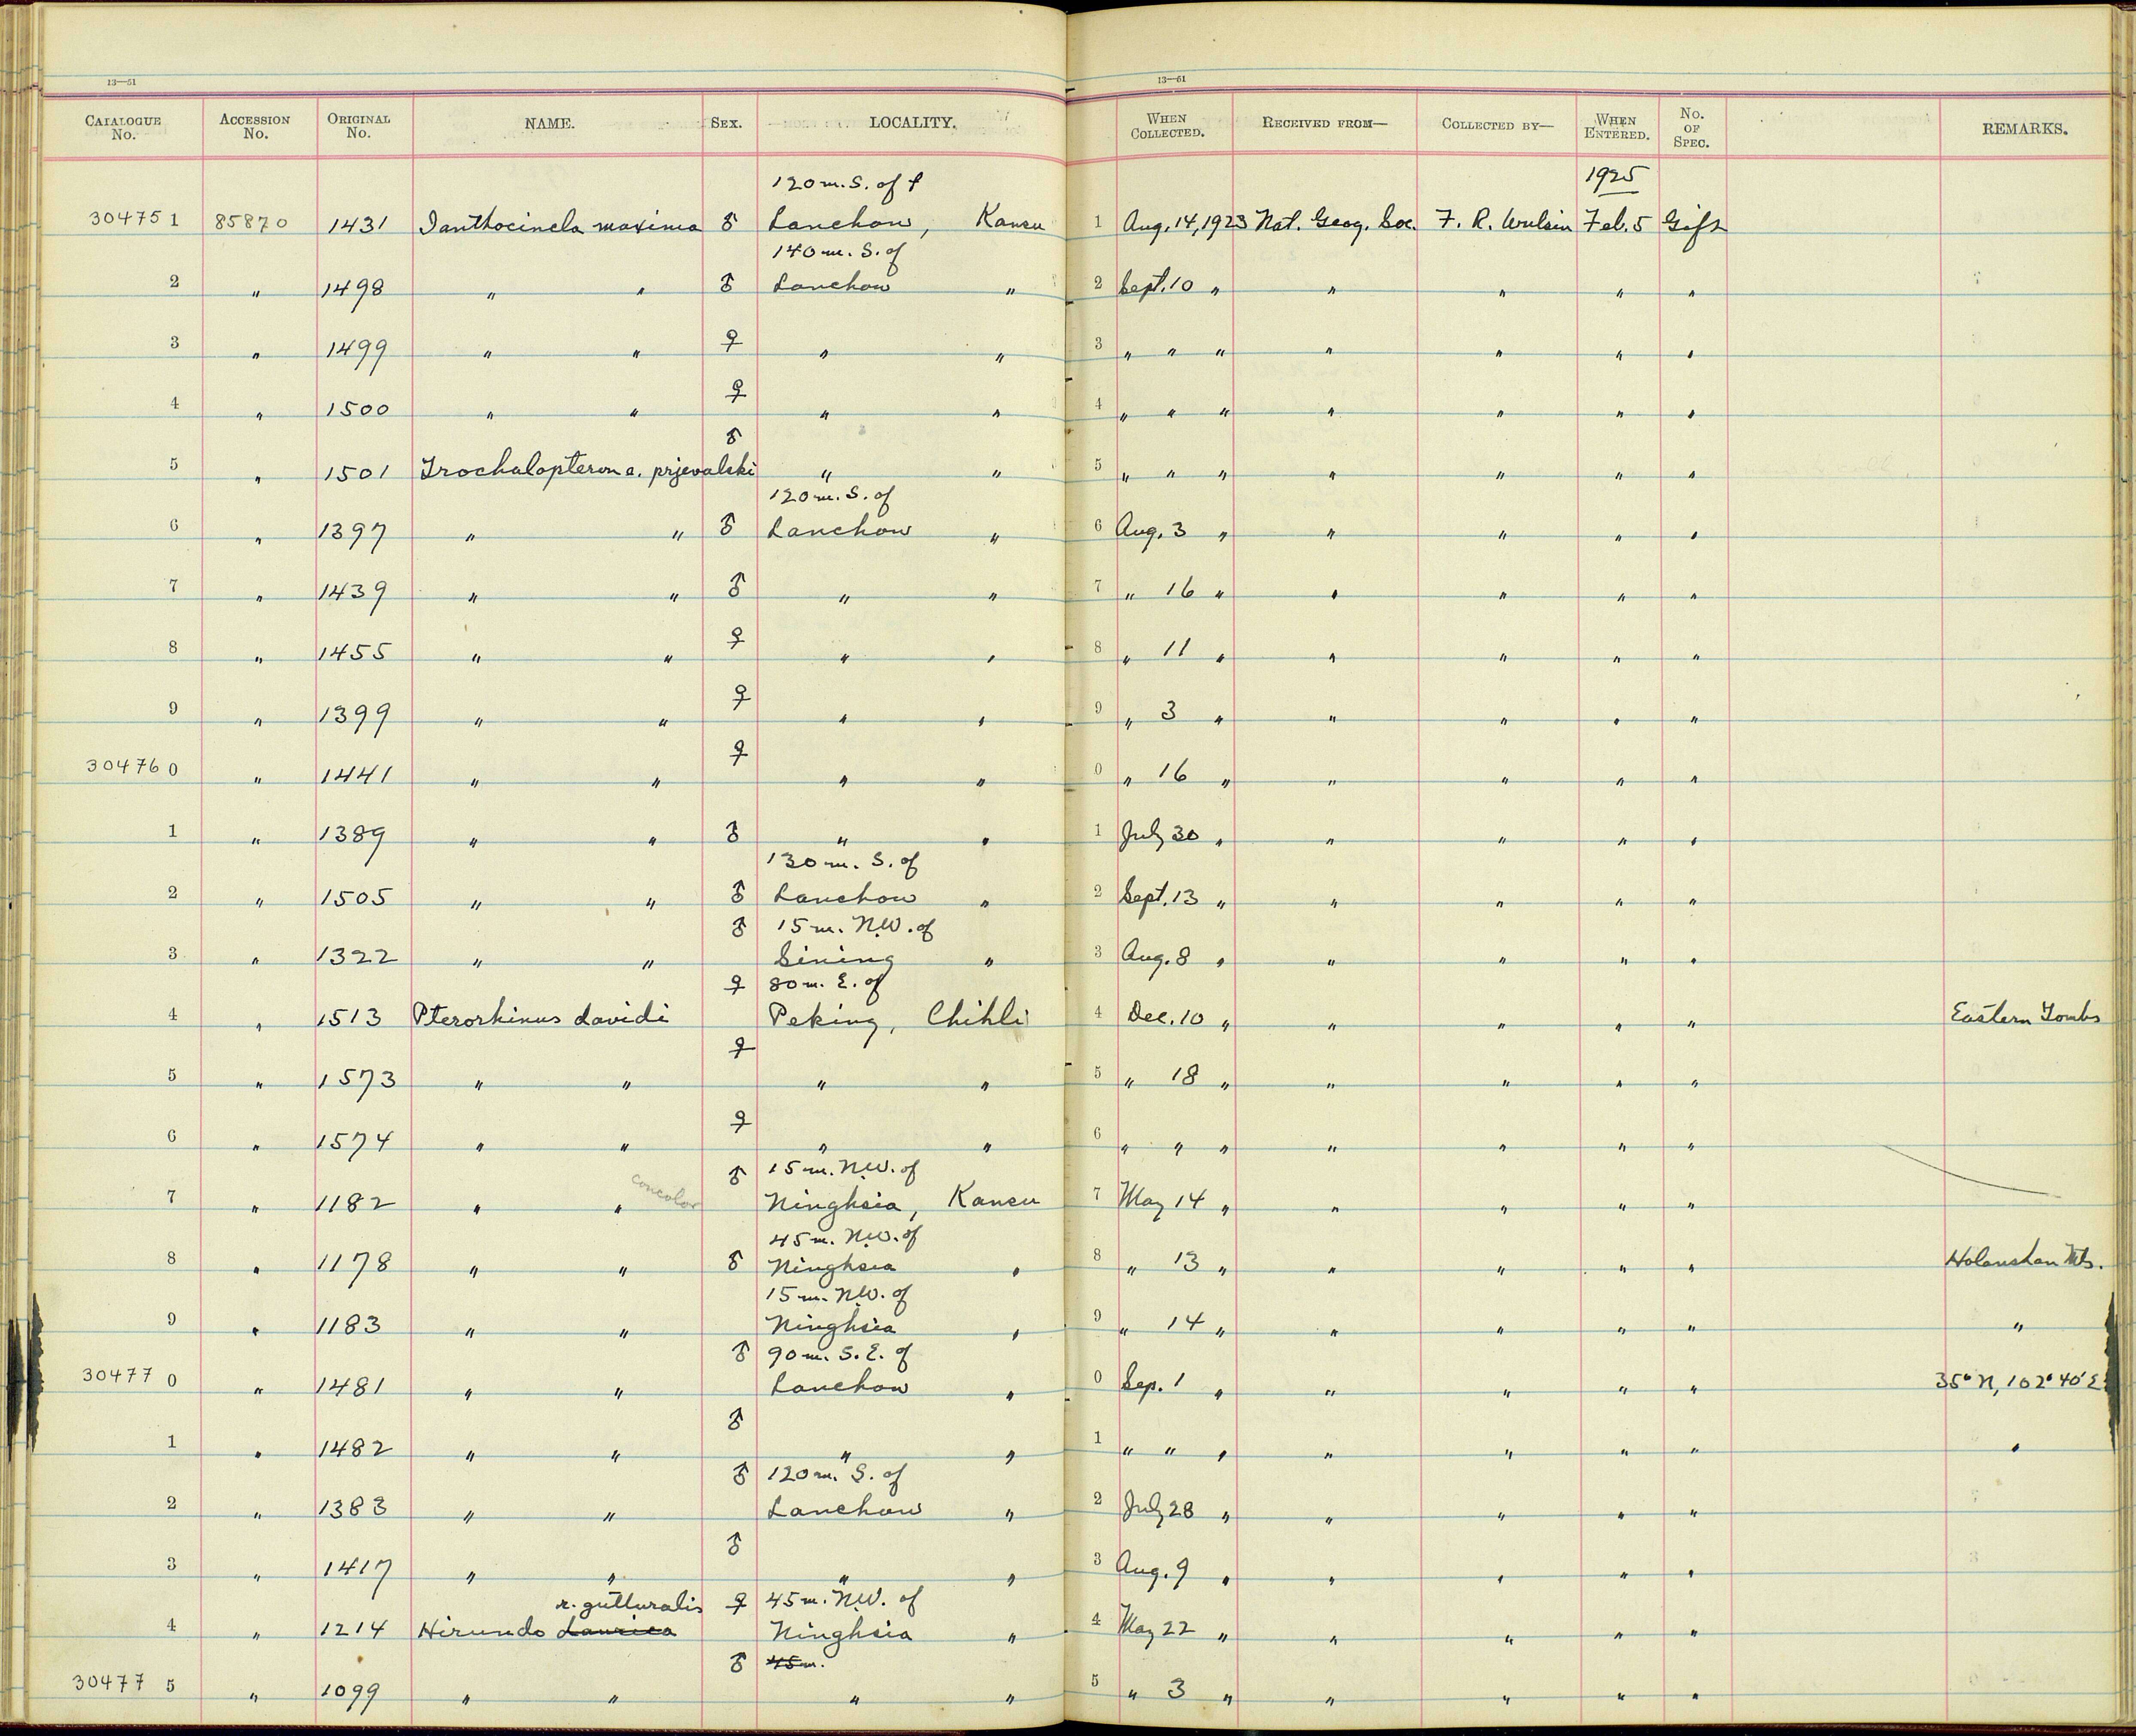 13—51
13—51
CATALOGUE No. ACCESSION No. ORIGINAL No. NAME. SEX. LOCALITY. WHEN COLLECTED. RECEIVED FROM— COLLECTED BY— WHEN ENTERED. No. OF SPEC. REMARKS.
120 m. S. of 1925
304751 85870 1431 Ianthocincla maxima ♂ Lanchow, Kansu 1 Aug. 14, 1923 Nat. Geog. Soc. F. R. Wulsin Feb. 5 Gift
140 m. S. of
2 " 1498 " " ♂ Lanchow " 2 Sept. 10 " " " " "
3 " 1499 " " ♀ " " 3 " " " " " " "
4 " 1500 " " ♀ " " 4 " " " " " " "
5 " 1501 Trochalopteron e. prjevalski ♂ " " 5 " " " " " " "
120 m. S. of
6 " 1397 " " ♂ Lanchow " 6 Aug. 3 " " " " "
7 " 1439 " " ♂ " " 7 " 16 " " " " "
8 " 1455 " " ♀ " " 8 " 11 " " " " "
9 " 1399 " " ♀ " " 9 " 3 " " " " "
304760 " 1441 " " ♀ " " 0 " 16 " " " " "
1 " 1389 " " ♂ " " 1 July 30 " " " " "
130 m. S. of
2 " 1505 " " ♂ Lanchow " 2 Sept. 13 " " " " "
15 m. N.W. of
3 " 1322 " " ♂ Sining " 3 Aug. 8 " " " " "
80 m. E. of
4 " 1513 Pterorhinus davidi ♀ Peking, Chihli 4 Dec. 10 " " " " " Eastern Tombs
5 " 1573 " " ♀ " " 5 " 18 " " " " "
6 " 1574 " " ♀ " " 6 " " " " " " "
concolor 15 m. N.W. of
7 " 1182 " " ♂ Ninghsia, Kansu 7 May 14 " " " " "
45 m. N.W. of
8 " 1178 " " ♂ Ninghsia " 8 " 13 " " " " " Holanshan Mts.
15 m. N.W. of
9 " 1183 " " Ninghsia " 9 " 14 " " " " " "
90 m. S. E. of
304770 " 1481 " " ♂ Lanchow " 0 Sep. 1 " " " " " 35° N, 102° 40' E
1 " 1482 " " ♂ " " 1 " " " " " " " "
120 m. S. of
2 " 1383 " " ♂ Lanchow " 2 July 28 " " " " "
3 " 1417 " " ♂ " " 3 Aug. 9 " " " " "
r. gutturalis 45 m. N.W. of
4 " 1214 Hirundo daurica ♀ Ninghsia " 4 May 22 " " " " "
45 m.
304775 " 1099 " " ♂ " " 5 " 3 " " " " "